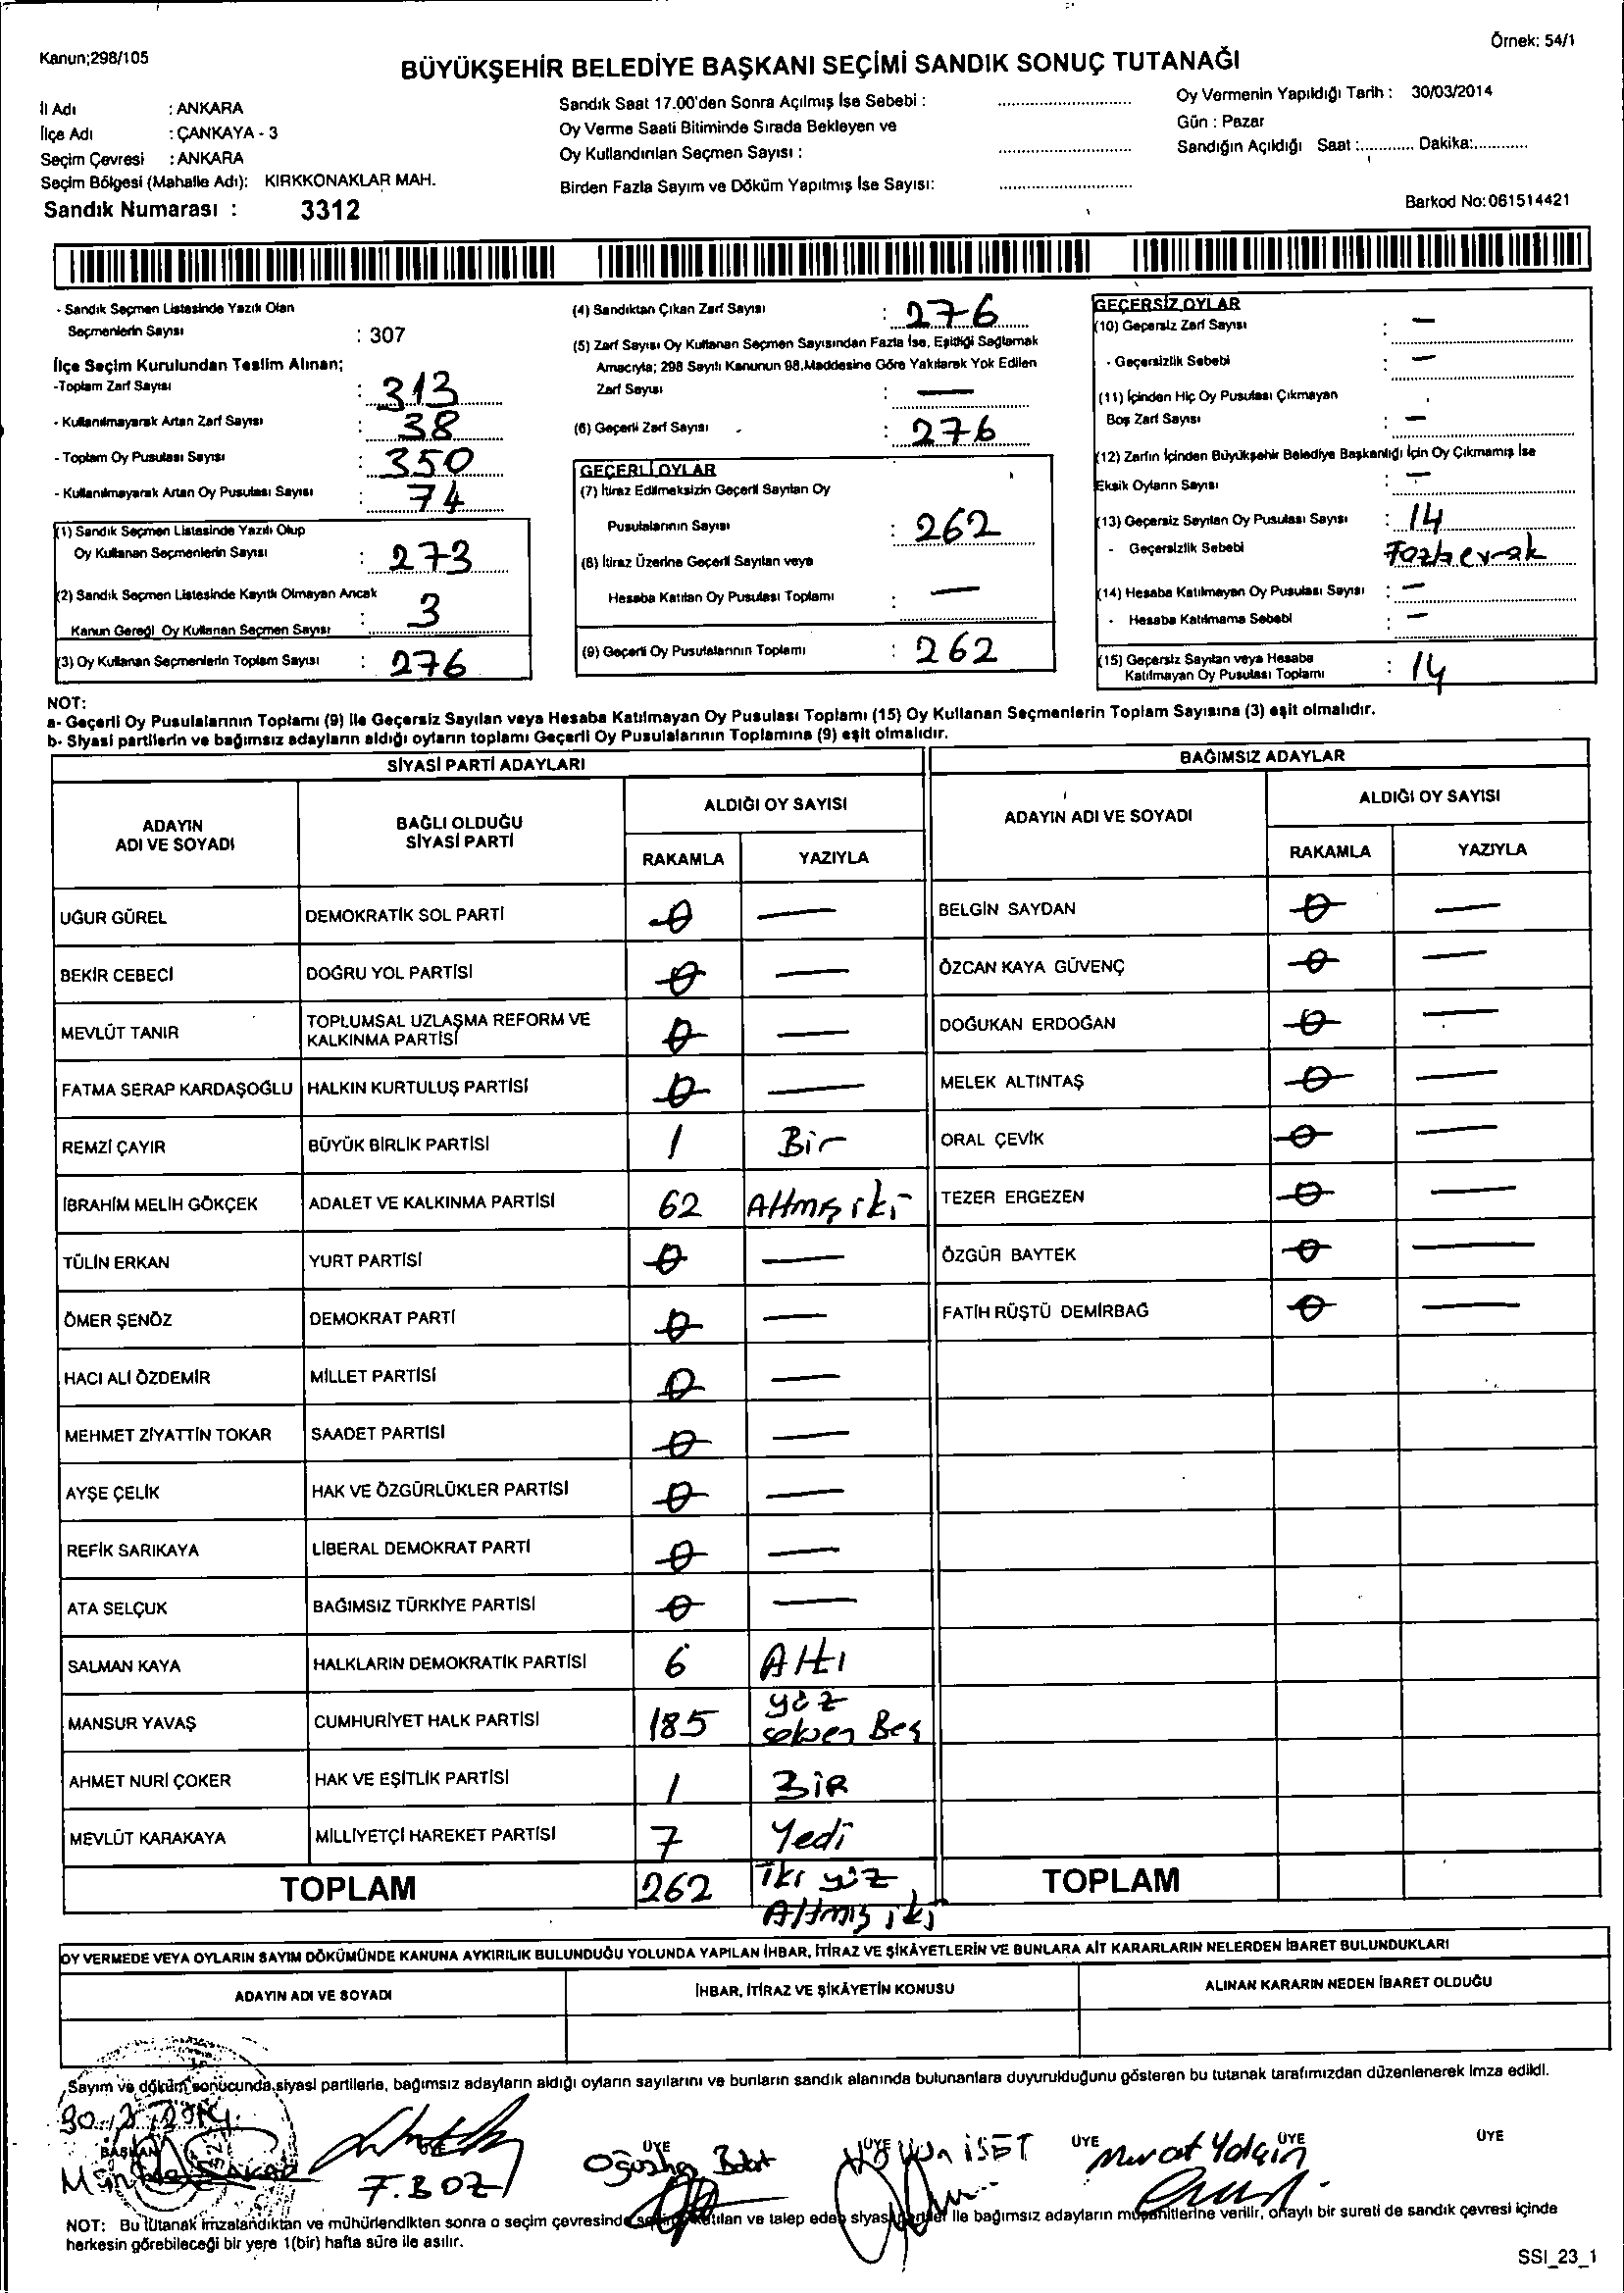 Kanun;298/105
Örnek: 54/1
BÜYÜKŞEHİR BELEDİYE BAŞKANI SEÇİMİ SANDIK SONUÇ TUTANAĞI
İl Adı : ANKARA
İlçe Adı : ÇANKAYA - 3
Seçim Çevresi : ANKARA
Seçim Bölgesi (Mahalle Adı): KIRKKONAKLAR MAH.
Sandık Numarası : 3312
Sandık Saat 17.00'den Sonra Açılmış İse Sebebi :
Oy Verme Saati Bitiminde Sırada Bekleyen ve
Oy Kullandırılan Seçmen Sayısı :
Birden Fazla Sayım ve Döküm Yapılmış İse Sayısı:
Oy Vermenin Yapıldığı Tarih : 30/03/2014
Gün : Pazar
Sandığın Açıldığı Saat :............ Dakika:............
Barkod No:061514421
- Sandık Seçmen Listesinde Yazılı Olan
Seçmenlerin Sayısı : 307
İlçe Seçim Kurulundan Teslim Alınan;
-Toplam Zarf Sayısı : 313
- Kullanılmayarak Artan Zarf Sayısı : 38
- Toplam Oy Pusulası Sayısı : 350
- Kullanılmayarak Artan Oy Pusulası Sayısı : 74
(1) Sandık Seçmen Listesinde Yazılı Olup
Oy Kullanan Seçmenlerin Sayısı : 273
(2) Sandık Seçmen Listesinde Kayıtlı Olmayan Ancak
Kanun Gereği Oy Kullanan Seçmen Sayısı : 3
(3) Oy Kullanan Seçmenlerin Toplam Sayısı : 276
(4) Sandıktan Çıkan Zarf Sayısı : 276
(5) Zarf Sayısı Oy Kullanan Seçmen Sayısından Fazla İse, Eşitliği Sağlamak
Amacıyla; 298 Sayılı Kanunun 98.Maddesine Göre Yakılarak Yok Edilen
Zarf Sayısı : —
(6) Geçerli Zarf Sayısı : 276
GEÇERLİ OYLAR
(7) İtiraz Edilmeksizin Geçerli Sayılan Oy
Pusulalarının Sayısı : 262
(8) İtiraz Üzerine Geçerli Sayılan veya
Hesaba Katılan Oy Pusulası Toplamı : —
(9) Geçerli Oy Pusulalarının Toplamı : 262
GEÇERSİZ OYLAR
(10) Geçersiz Zarf Sayısı : —
- Geçersizlik Sebebi : —
(11) İçinden Hiç Oy Pusulası Çıkmayan
Boş Zarf Sayısı : —
(12) Zarfın İçinden Büyükşehir Belediye Başkanlığı İçin Oy Çıkmamış İse
Eksik Oyların Sayısı : —
(13) Geçersiz Sayılan Oy Pusulası Sayısı : 14
- Geçersizlik Sebebi
(14) Hesaba Katılmayan Oy Pusulası Sayısı : —
- Hesaba Katılmama Sebebi : —
(15) Geçersiz Sayılan veya Hesaba
Katılmayan Oy Pusulası Toplamı : 14
NOT:
a- Geçerli Oy Pusulalarının Toplamı (9) ile Geçersiz Sayılan veya Hesaba Katılmayan Oy Pusulası Toplamı (15) Oy Kullanan Seçmenlerin Toplam Sayısına (3) eşit olmalıdır.
b- Siyasi partilerin ve bağımsız adayların aldığı oyların toplamı Geçerli Oy Pusulalarının Toplamına (9) eşit olmalıdır.
SİYASİ PARTİ ADAYLARI
BAĞIMSIZ ADAYLAR
ADAYIN ADI VE SOYADI
BAĞLI OLDUĞU SİYASİ PARTİ
ALDIĞI OY SAYISI
RAKAMLA YAZIYLA
ADAYIN ADI VE SOYADI
ALDIĞI OY SAYISI
RAKAMLA YAZIYLA
UĞUR GÜREL DEMOKRATİK SOL PARTİ 0 — BELGİN SAYDAN 0 —
BEKİR CEBECİ DOĞRU YOL PARTİSİ 0 — ÖZCAN KAYA GÜVENÇ 0 —
MEVLÜT TANIR TOPLUMSAL UZLAŞMA REFORM VE KALKINMA PARTİSİ 0 — DOĞUKAN ERDOĞAN 0 —
FATMA SERAP KARDAŞOĞLU HALKIN KURTULUŞ PARTİSİ 0 — MELEK ALTINTAŞ 0 —
REMZİ ÇAYIR BÜYÜK BİRLİK PARTİSİ 1 Bir ORAL ÇEVİK 0 —
İBRAHİM MELİH GÖKÇEK ADALET VE KALKINMA PARTİSİ 62 Altmış iki TEZER ERGEZEN 0 —
TÜLİN ERKAN YURT PARTİSİ 0 — ÖZGÜR BAYTEK 0 —
ÖMER ŞENÖZ DEMOKRAT PARTİ 0 — FATİH RÜŞTÜ DEMİRBAĞ 0 —
HACI ALİ ÖZDEMİR MİLLET PARTİSİ 0 —
MEHMET ZİYATTİN TOKAR SAADET PARTİSİ 0 —
AYŞE ÇELİK HAK VE ÖZGÜRLÜKLER PARTİSİ 0 —
REFİK SARIKAYA LİBERAL DEMOKRAT PARTİ 0 —
ATA SELÇUK BAĞIMSIZ TÜRKİYE PARTİSİ 0 —
SALMAN KAYA HALKLARIN DEMOKRATİK PARTİSİ 6 Altı
MANSUR YAVAŞ CUMHURİYET HALK PARTİSİ 185 yüz seksen Beş
AHMET NURİ ÇOKER HAK VE EŞİTLİK PARTİSİ 1 BİR
MEVLÜT KARAKAYA MİLLİYETÇİ HAREKET PARTİSİ 7 Yedi
TOPLAM 262 İki yüz Altmış iki TOPLAM
OY VERMEDE VEYA OYLARIN SAYIM DÖKÜMÜNDE KANUNA AYKIRILIK BULUNDUĞU YOLUNDA YAPILAN İHBAR, İTİRAZ VE ŞİKÂYETLERİN VE BUNLARA AİT KARARLARIN NELERDEN İBARET BULUNDUKLARI
ADAYIN ADI VE SOYADI İHBAR, İTİRAZ VE ŞİKÂYETİN KONUSU ALINAN KARARIN NEDEN İBARET OLDUĞU
Sayım ve döküm sonucunda,siyasi partilerle, bağımsız adayların aldığı oyların sayılarını ve bunların sandık alanında bulunanlara duyurulduğunu gösteren bu tutanak tarafımızdan düzenlenerek imza edildi.
BAŞKAN ÜYE ÜYE ÜYE ÜYE ÜYE
F. BOZ Murat Yalçın
NOT: Bu tutanak imzalandıktan ve mühürlendikten sonra o seçim çevresinde katılan ve talep eden siyasi partiler ile bağımsız adayların müşahitlerine verilir, onaylı bir sureti de sandık çevresi içinde
herkesin görebileceği bir yere 1(bir) hafta süre ile asılır.
SSI_23_1